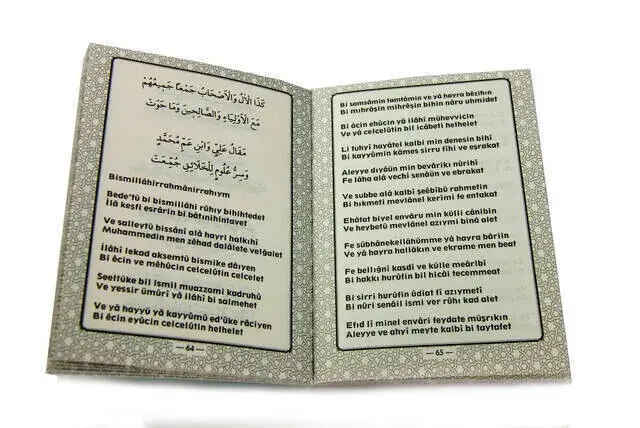 كَذَا الْاٰلُ وَالْاَصْحَابُ جَمْعًا جَمِيعُهُمْ
مَعَ الْاَوْلِيَاءِ وَالصَّالِحِينَ وَمَا حَوَتْ
مَقَالُ عَلِيٍّ وَابْنِ عَمِّ مُحَمَّدٍ
وَسِرُّ عُلُومٍ لِلْخَلَائِقِ جُمِّعَتْ
Bismillâhirrahmânirrahıym
Bede'tü bi bismillâhi rûhıy bihihtedet
İlâ keşfi esrârin bi bâtınihintavet
Ve salleytü bissâni alâ hayri halkıhî
Muhammedin men zêhad dalâlete velğalet
İlâhî lekad aksemtü bismike dâıyen
Bi êcin ve mêhûcin celcelûtin celcelet
Seeltüke bil ismil muazzami kadruhû
Ve yessir ümûrî yâ ilâhî bi salmehet
Ve yâ hayyü yâ kayyûmü ed'ûke râciyen
Bi êcin eyûcin celcelûtin helhelet
— 64 —
Bi samsâmin tamtâmin ve yâ hayra bêzihın
Bi mıhrâşin mihrêşin bihin nâru uhmidet
Bi âcin ehûcin yâ ilâhi mühevvicin
Ve yâ celcelûtin bil icâbeti helhelet
Li tuhyî havâtel kalbi min denesin bihî
Bi kayyûmin kâmes sirru fîhi ve eşrakat
Aleyye dıyâün min bevârikı nûrihî
Fe lâha alâ vechî senâün ve ebrakat
Ve subbe alâ kalbî şeêbîbü rahmetin
Bi hıkmeti mevlânel kerîmi fe entakat
Ehâtat biyel envâru min külli cânibin
Ve heybetü mevlânel azıymi binâ alet
Fe sübhânekellâhümme yâ hayra bâriin
Ve yâ hayra hallâkın ve ekrame men beat
Fe belliğnî kasdî ve külle meâribî
Bi hakkı hurûfin bil hicâi tecemmeat
Bi sirri hurûfin ûdiat fî azıymetî
Bi nûri senâil ismi ver rûhı kad alet
Efıd lî minel envâri feydate müşrıkın
Aleyye ve ahyî meyte kalbî bi taytafet
— 65 —